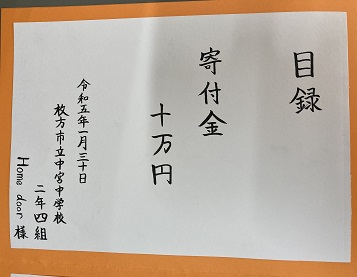 目録
寄付金
十万円
令和五年一月三十日
枚方市立中宮中学校
二年四組
Home door 様